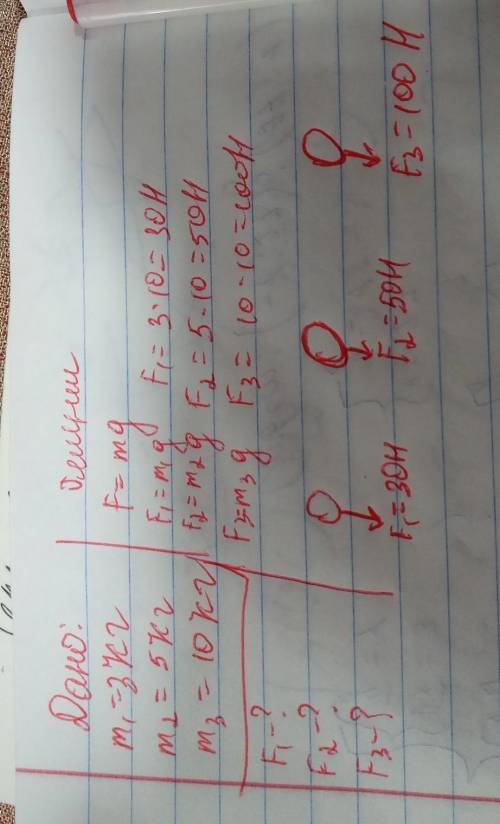 Дано:
m₁ = 3кг
m₂ = 5кг
m₃ = 10кг
F₁ - ?
F₂ - ?
F₃ - ?
F = mg
F₁ = m₁g F₁ = 3·10 = 30Н
F₂ = m₂g F₂ = 5·10 = 50Н
F₃ = m₃g F₃ = 10·10 = 100Н
F₁ = 30Н
F₂ = 50Н
F₃ = 100Н